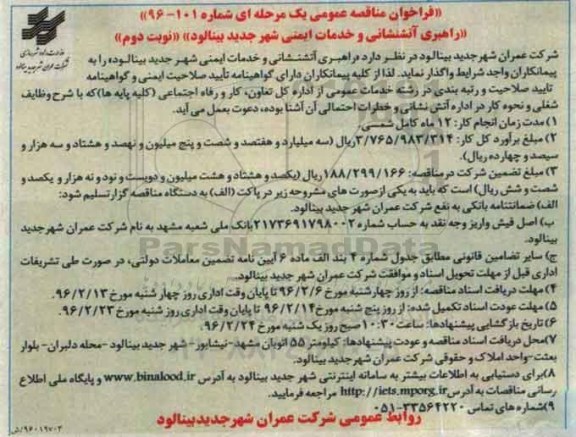 «فراخوان مناقصه عمومی یک مرحله ای شماره ۱۰۱-۹۶»
«راهبری آتشنشانی و خدمات ایمنی شهر جدید بینالود» «نوبت دوم»
شرکت عمران شهر جدید بینالود در نظر دارد «راهبری آتشنشانی و خدمات ایمنی شهر جدید بینالود» را به
پیمانکاران واجد شرایط واگذار نماید. لذا از کلیه پیمانکاران دارای گواهینامه تأیید صلاحیت ایمنی و گواهینامه
تایید صلاحیت و رتبه بندی در رشته خدمات عمومی از اداره کل تعاون، کار و رفاه اجتماعی (کلیه پایه ها) که با شرح وظایف
شغلی و نحوه کار در اداره آتش نشانی و خطرات احتمالی آن آشنا بوده، دعوت بعمل می آید.
۱) مدت زمان انجام کار: ۱۲ ماه کامل شمسی
۲) مبلغ برآورد کل کار: ۳/۷۶۵/۹۸۳/۳۱۴ ریال (سه میلیارد و هفتصد و شصت و پنج میلیون و نهصد و هشتاد و سه هزار و
سیصد و چهارده ریال).
۳) مبلغ تضمین شرکت در مناقصه: ۱۸۸/۲۹۹/۱۶۶ ریال (یکصد و هشتاد و هشت میلیون و دویست و نود و نه هزار و یکصد و
شصت و شش ریال) است که باید به یکی از صورت های مشروحه زیر در پاکت (الف) به دستگاه مناقصه گزار تسلیم شود:
الف) ضمانتنامه بانکی به نفع شرکت عمران شهر جدید بینالود.
ب) اصل فیش واریز وجه نقد به حساب شماره ۲۱۷۳۶۹۱۷۹۸۰۰۲ بانک ملی شعبه مشهد به نام شرکت عمران شهر جدید
بینالود.
ج) سایر تضامین قانونی مطابق جدول شماره ۴ بند الف ماده ۶ آیین نامه تضمین معاملات دولتی، در صورت طی تشریفات
اداری قبل از مهلت تحویل اسناد و موافقت شرکت عمران شهر جدید بینالود.
۴) مهلت دریافت اسناد مناقصه: از روز چهارشنبه مورخ ۹۶/۲/۶ تا پایان وقت اداری روز چهار شنبه مورخ ۹۶/۲/۱۳.
۵) مهلت عودت اسناد تکمیل شده: از روز پنج شنبه مورخ ۹۶/۲/۱۴ تا پایان وقت اداری روز شنبه مورخ ۹۶/۲/۲۳.
۶) تاریخ بازگشایی پیشنهادها: ساعت ۱۰:۳۰ صبح روز یک شنبه مورخ ۹۶/۲/۲۴
۷) محل دریافت اسناد مناقصه و عودت پیشنهادها: کیلومتر ۵۵ اتوبان مشهد-نیشابور- شهر جدید بینالود -محله دلبران- بلوار
بعثت-واحد املاک و حقوقی شرکت عمران شهر جدید بینالود.
۸) برای دستیابی به اطلاعات بیشتر به سامانه اینترنتی شهر جدید بینالود به آدرس www.binalood.ir و پایگاه ملی اطلاع
رسانی مناقصات به آدرس http://iets.mporg.ir مراجعه فرمایید.
۹) شماره های تماس ۳۳۵۶۴۲۲۰-۰۵۱
روابط عمومی شرکت عمران شهر جدید بینالود
ParsNamadData